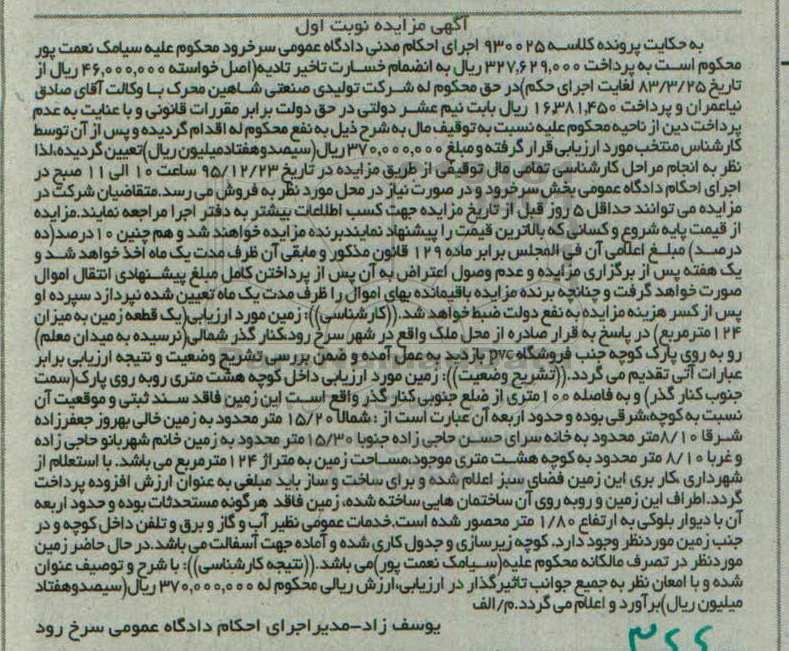 آگهی مزایده نوبت اول
به حکایت پرونده کلاسه ۹۳۰۰۲۵ اجرای احکام مدنی دادگاه عمومی سرخرود محکوم علیه سیامک نعمت پور
محکوم است به پرداخت ۳۲۷,۶۲۹,۰۰۰ ریال به انضمام خسارت تاخیر تادیه(اصل خواسته ۴۶,۰۰۰,۰۰۰ ریال از
تاریخ ۸۳/۳/۲۵ لغایت اجرای حکم)در حق محکوم له شرکت تولیدی صنعتی شاهین محرک با وکالت آقای صادق
نیاعمران و پرداخت ۱۶,۳۸۱,۴۵۰ ریال بابت نیم عشر دولتی در حق دولت برابر مقررات قانونی و با عنایت به عدم
پرداخت دین از ناحیه محکوم علیه نسبت به توقیف مال به شرح ذیل به نفع محکوم له اقدام گردیده و پس از آن توسط
کارشناس منتخب مورد ارزیابی قرار گرفته و مبلغ ۳۷۰,۰۰۰,۰۰۰ ریال(سیصدوهفتادمیلیون ریال)تعیین گردیده،لذا
نظر به انجام مراحل کارشناسی تمامی مال توقیفی از طریق مزایده در تاریخ ۹۵/۱۲/۲۳ ساعت ۱۰ الی ۱۱ صبح در
اجرای احکام دادگاه عمومی بخش سرخرود و در صورت نیاز در محل مورد نظر به فروش می رسد.متقاضیان شرکت در
مزایده می توانند حداقل ۵ روز قبل از تاریخ مزایده جهت کسب اطلاعات بیشتر به دفتر اجرا مراجعه نمایند.مزایده
از قیمت پایه شروع و کسانی که بالاترین قیمت را پیشنهاد نمایندبرنده مزایده خواهند شد و هم چنین ۱۰درصد(ده
درصد) مبلغ اعلامی آن فی المجلس برابر ماده ۱۲۹ قانون مذکور و مابقی آن ظرف مدت یک ماه اخذ خواهد شد و
یک هفته پس از برگزاری مزایده و عدم وصول اعتراض به آن پس از پرداختن کامل مبلغ پیشنهادی انتقال اموال
صورت خواهد گرفت و چنانچه برنده مزایده باقیمانده بهای اموال را ظرف مدت یک ماه تعیین شده نپردازد سپرده او
پس از کسر هزینه مزایده به نفع دولت ضبط خواهد شد.((کارشناسی)): زمین مورد ارزیابی(یک قطعه زمین به میزان
۱۲۴مترمربع) در پاسخ به قرار صادره از محل ملک واقع در شهر سرخ رود،کنار گذر شمالی(نرسیده به میدان معلم)
رو به روی پارک کوچه جنب فروشگاه pvc بازدید به عمل آمده و ضمن بررسی تشریح وضعیت و نتیجه ارزیابی برابر
عبارات آتی تقدیم می گردد.((تشریح وضعیت)): زمین مورد ارزیابی داخل کوچه هشت متری روبه روی پارک(سمت
جنوب کنار گذر) و به فاصله ۱۰۰متری از ضلع جنوبی کنار گذر واقع است این زمین فاقد سند ثبتی و موقعیت آن
نسبت به کوچه،شرقی بوده و حدود اربعه آن عبارت است از : شمالا ۱۵/۲۰ متر محدود به زمین خالی بهروز جعفرزاده
شرقا ۸/۱۰متر محدود به خانه سرای حسن حاجی زاده جنوبا ۱۵/۳۰متر محدود به زمین خانم شهربانو حاجی زاده
و غربا ۸/۱۰ متر محدود به کوچه هشت متری موجود،مساحت زمین به متراژ ۱۲۴مترمربع می باشد. با استعلام از
شهرداری ،کار بری این زمین فضای سبز اعلام شده و برای ساخت و ساز باید مبلغی به عنوان ارزش افزوده پرداخت
گردد.اطراف این زمین و روبه روی آن ساختمان هایی ساخته شده، زمین فاقد هرگونه مستحدثات بوده و حدود اربعه
آن با دیوار بلوکی به ارتفاع ۱/۸۰ متر محصور شده است.خدمات عمومی نظیر آب و گاز و برق و تلفن داخل کوچه و در
جنب زمین موردنظر وجود دارد. کوچه زیرسازی و جدول کاری شده و آماده جهت آسفالت می باشد.در حال حاضر زمین
موردنظر در تصرف مالکانه محکوم علیه(سیامک نعمت پور)می باشد.((نتیجه کارشناسی)): با شرح و توصیف عنوان
شده و با امعان نظر به جمیع جوانب تاثیرگذار در ارزیابی،ارزش ریالی محکوم له ۳۷۰,۰۰۰,۰۰۰ ریال(سیصدوهفتاد
میلیون ریال)برآورد و اعلام می گردد.م/الف
یوسف زاد-مدیراجرای احکام دادگاه عمومی سرخ رود